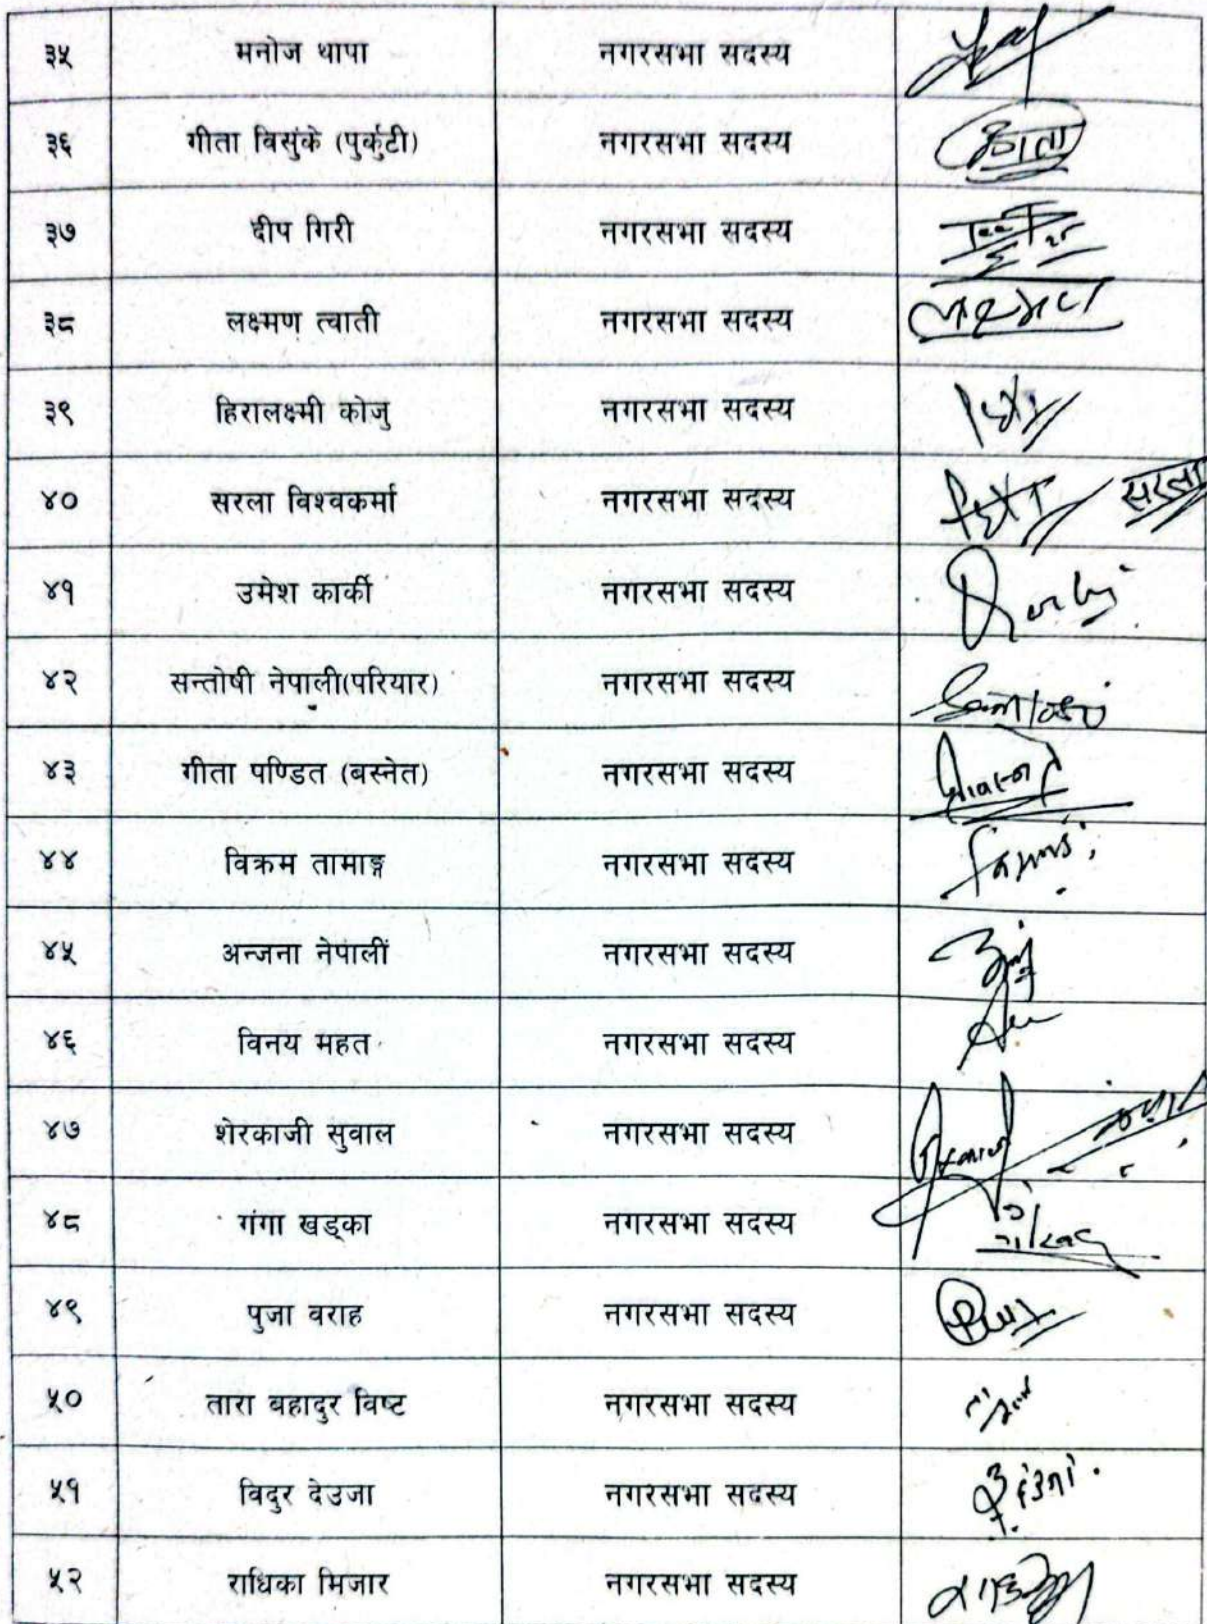 ३५ मनोज थापा नगरसभा सदस्य
३६ गीता विसुंके (पुर्कुटी) नगरसभा सदस्य
३७ दीप गिरी नगरसभा सदस्य
३८ लक्ष्मण त्वाती नगरसभा सदस्य
३९ हिरालक्ष्मी कोजु नगरसभा सदस्य
४० सरला विश्वकर्मा नगरसभा सदस्य सरला
४१ उमेश कार्की नगरसभा सदस्य
४२ सन्तोषी नेपाली(परियार) नगरसभा सदस्य
४३ गीता पण्डित (बस्नेत) नगरसभा सदस्य
४४ विक्रम तामाङ्ग नगरसभा सदस्य
४५ अन्जना नेपाली नगरसभा सदस्य
४६ विनय महत नगरसभा सदस्य
४७ शेरकाजी सुवाल नगरसभा सदस्य
४८ गंगा खड्का नगरसभा सदस्य
४९ पुजा वराह नगरसभा सदस्य
५० तारा बहादुर विष्ट नगरसभा सदस्य
५१ विदुर देउजा नगरसभा सदस्य
५२ राधिका मिजार नगरसभा सदस्य